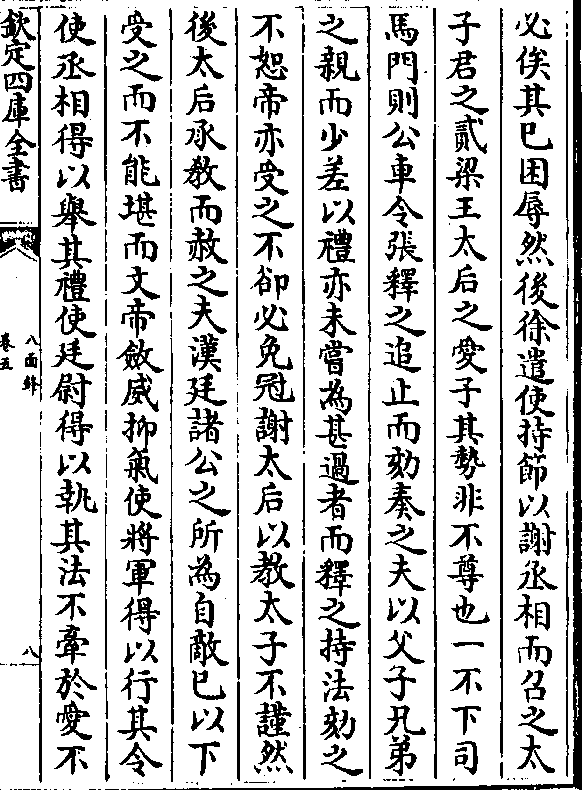 必俟其已困辱然後徐遣使持節以謝丞相而召之太
子君之貳梁王太后之愛子其勢非不尊也一不下司
馬門則公車令張釋之追止而劾奏之夫以父子兄弟
之親而少差以禮亦未嘗為甚過者而釋之持法劾之
不恕帝亦受之不卻必免冠謝太后以教太子不謹然
後太后承教而赦之夫漢廷諸公之所為自敵已以下
受之而不能堪而文帝斂威抑氣使將軍得以行其令
使丞相得以舉其禮使廷尉得以執其法不牽於愛不
欽定四庫全書
八面鋒
卷五
八